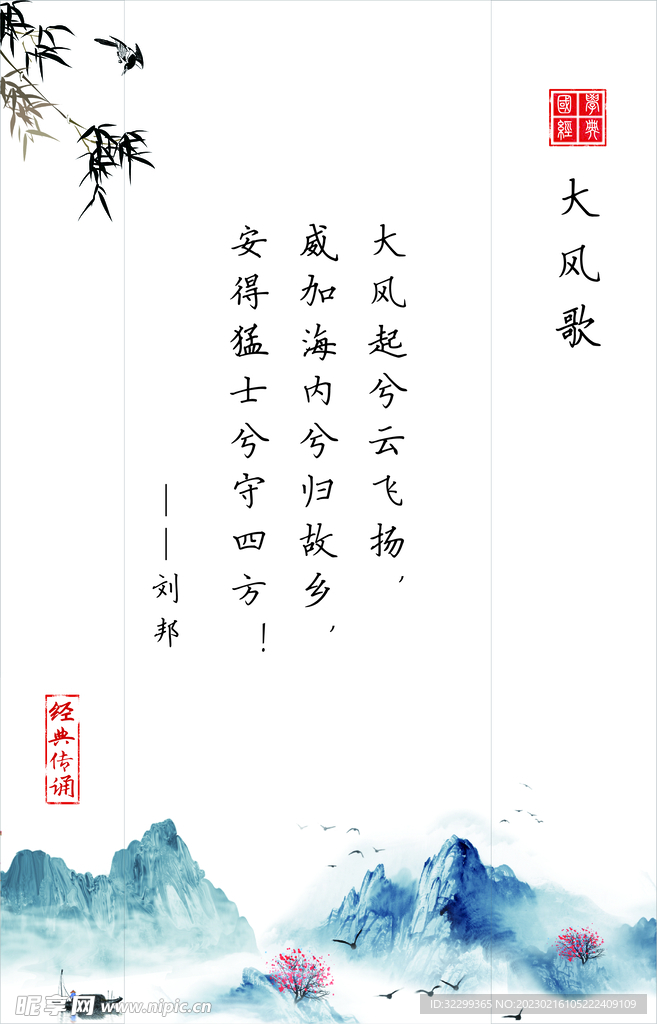 國學經典
大风歌
大风起兮云飞扬，
威加海内兮归故乡，
安得猛士兮守四方！
——刘邦
经典传诵
昵享网 www.nipic.cn
ID:32299365 NO:20230216105222409109